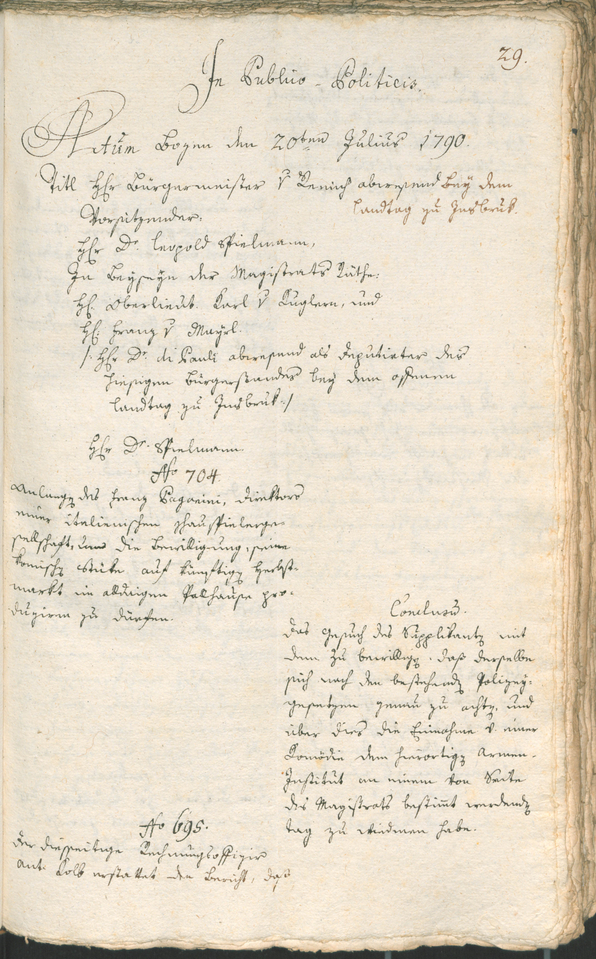 29.
In Publico-Politicis.
Actum Bozen den 20ten Julius 1790.
Titl Hhr Bürgermeister v Remich abwesend bey dem
Landtag zu Insbruk.
Vorsitzender:
Hhr Dr. Leopold Spielmann,
In Beyseyn der Magistrats Räthe:
HH. Oberlieut. Karl v Kuglern, und
HH. Franz v Mayrl.
/: Hhr Dr. di Pauli abwesend als Deputirter des
hiesigen Bürgerstandes bey dem offenen
Landtag zu Insbruk :/
Hhr Dr. Spielmann
No 704.
Anlangen des Franz Paganini, Direktors
einer italienischen Schauspielerge-
sellschaft, um die Bewilligung, seine
komische Stüke auf künftigen Herbst-
markt im alldaigen Balhause pro-
duziren zu dürfen.
Conclusum.
Das Gesuch des Supplikanten mit
dem zu bewilligen, daß derselbe
sich nach den bestehenden Polizey-
gesetzen genau zu achten, und
über dies die Einnahme v einer
Komödie dem hierortigen Armen-
Institut an einem von Seite
des Magistrats bestimt werdenden
tag zu widmen habe.
No 695.
Der diesseitige Rechnungsoffizier
Ant. Kolb erstattet den Bericht, daß